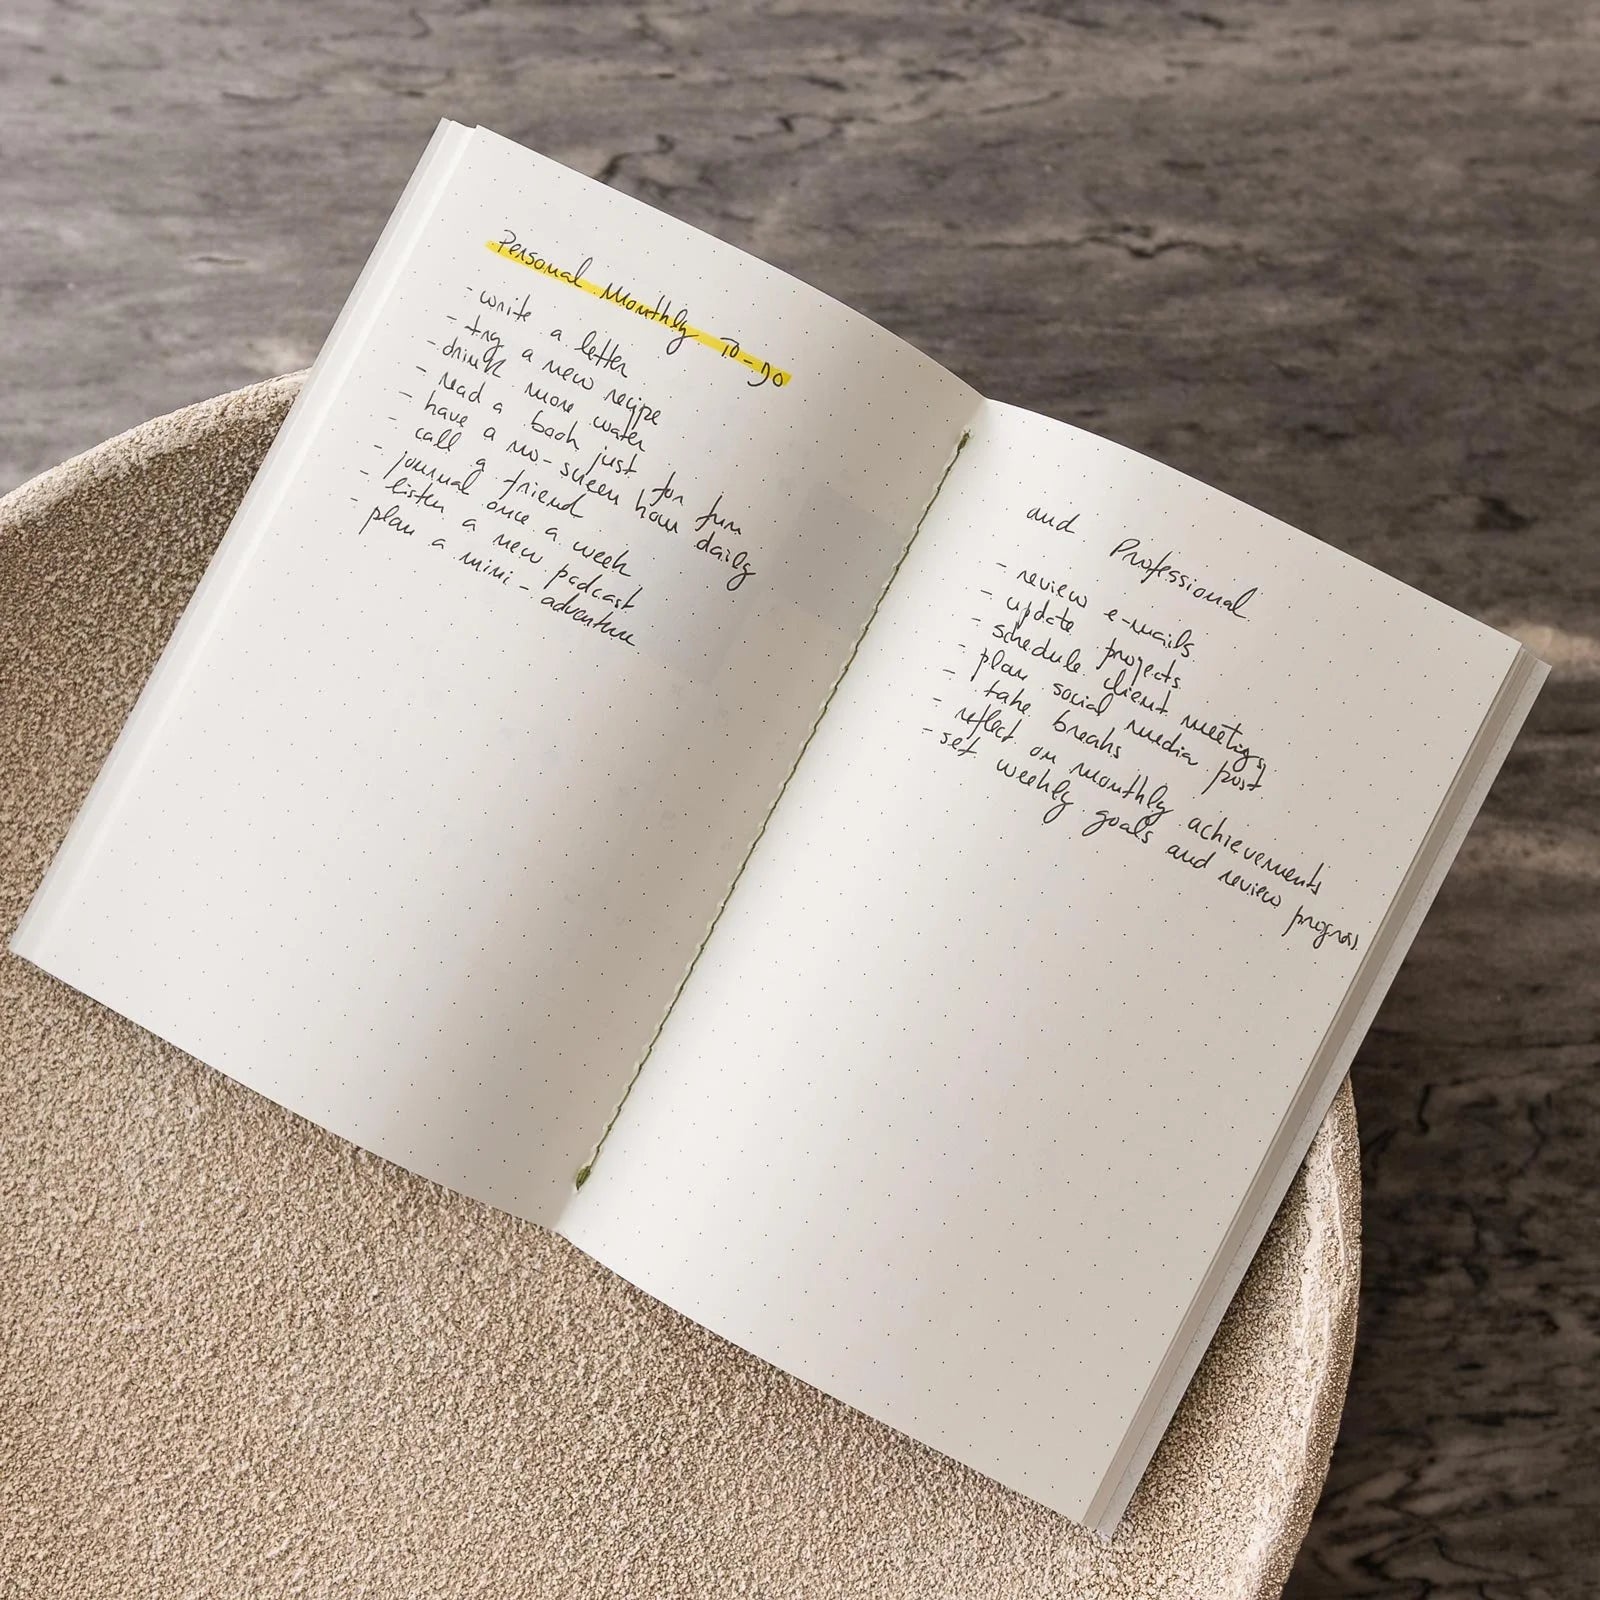 Personal Monthly To-Do
- write a letter
- try a new recipe
- drink more water
- read a book just for fun
- have a no-screen hour daily
- call a friend
- journal once a week
- listen a new podcast
- plan a mini-adventure
and Professional
- review e-mails
- update projects
- schedule client meetings
- plan social media post
- take breaks
- reflect on monthly achievements
- set weekly goals and review progress